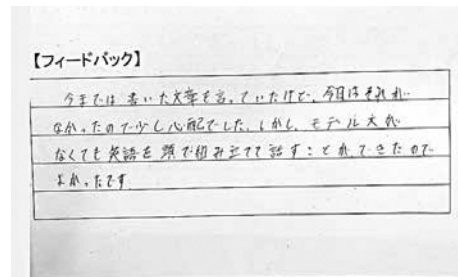 【フィードバック】
今までは書いた文章を言っていたけど、今日はそれが
なかったので少し心配でした。しかし、モデル文が
なくても英語を頭で組み立てて話すことができたので
よかったです